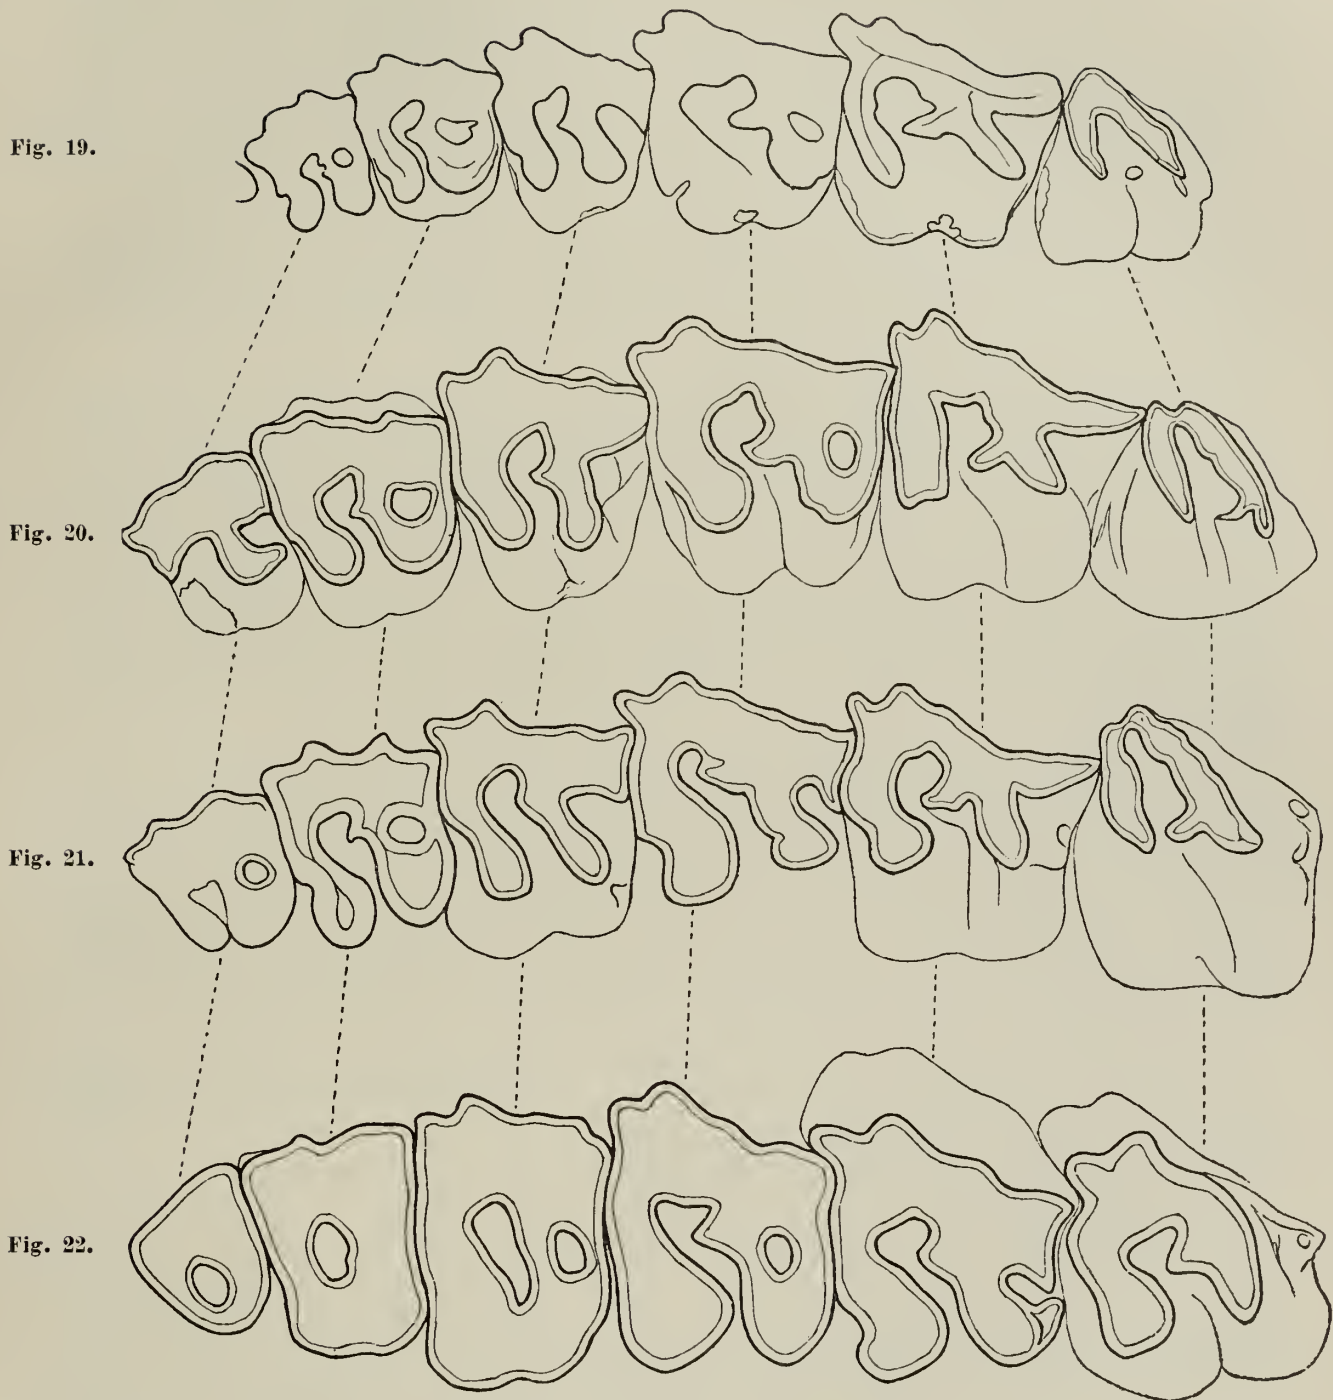 Fig. 19.
Fig. 20.
Fig. 21.
Fig. 22.